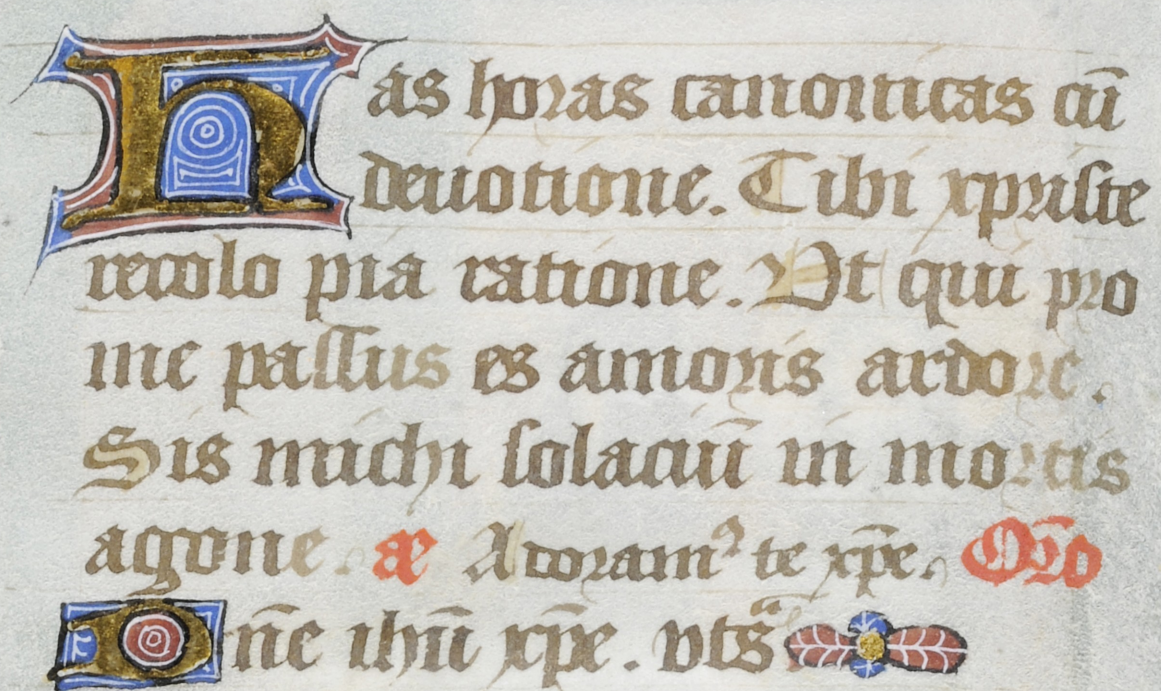 Has horas canonicas cū
deuotione. Tibi xpriste
recolo pia ratione. Vt qui pro
me passus es amoris ardore.
Sis michi solaciū in mortis
agone. æ Adoramꝰ te xp̄e. Oro̅
Dn̄e ihū xp̄e. vtsᵃ